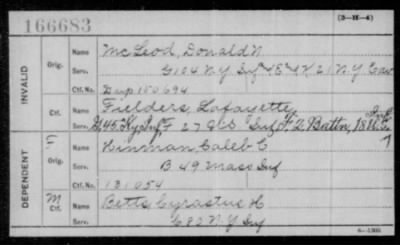 166683
(3-H-4)
INVALID
Orig.
Name McLeod, Donald N
Serv. G 104 N.Y. Inf 45 & K 21 N.Y. Cav
Ctf. No. Dup 150694
Ctf.
Name Fielders, Lafayette,
Serv. 45 Ky Inf, F 27 Inf F. 2 Battn, 18
DEPENDENT
F
Orig.
Name Hinman Caleb C
Serv. B 49 Mass Inf
Ctf. No. 131054
M
Ctf.
Name Betts Cyrastus H
Serv. N.Y. Inf